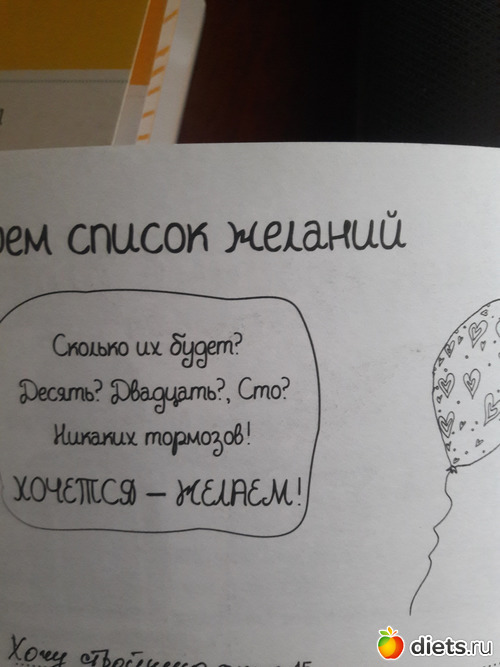 ем список желаний
Сколько их будет?
Десять? Двадцать?, Сто?
Никаких тормозов!
ХОЧЕТСЯ — ЖЕЛАЕМ!
Хочу
diets.ru